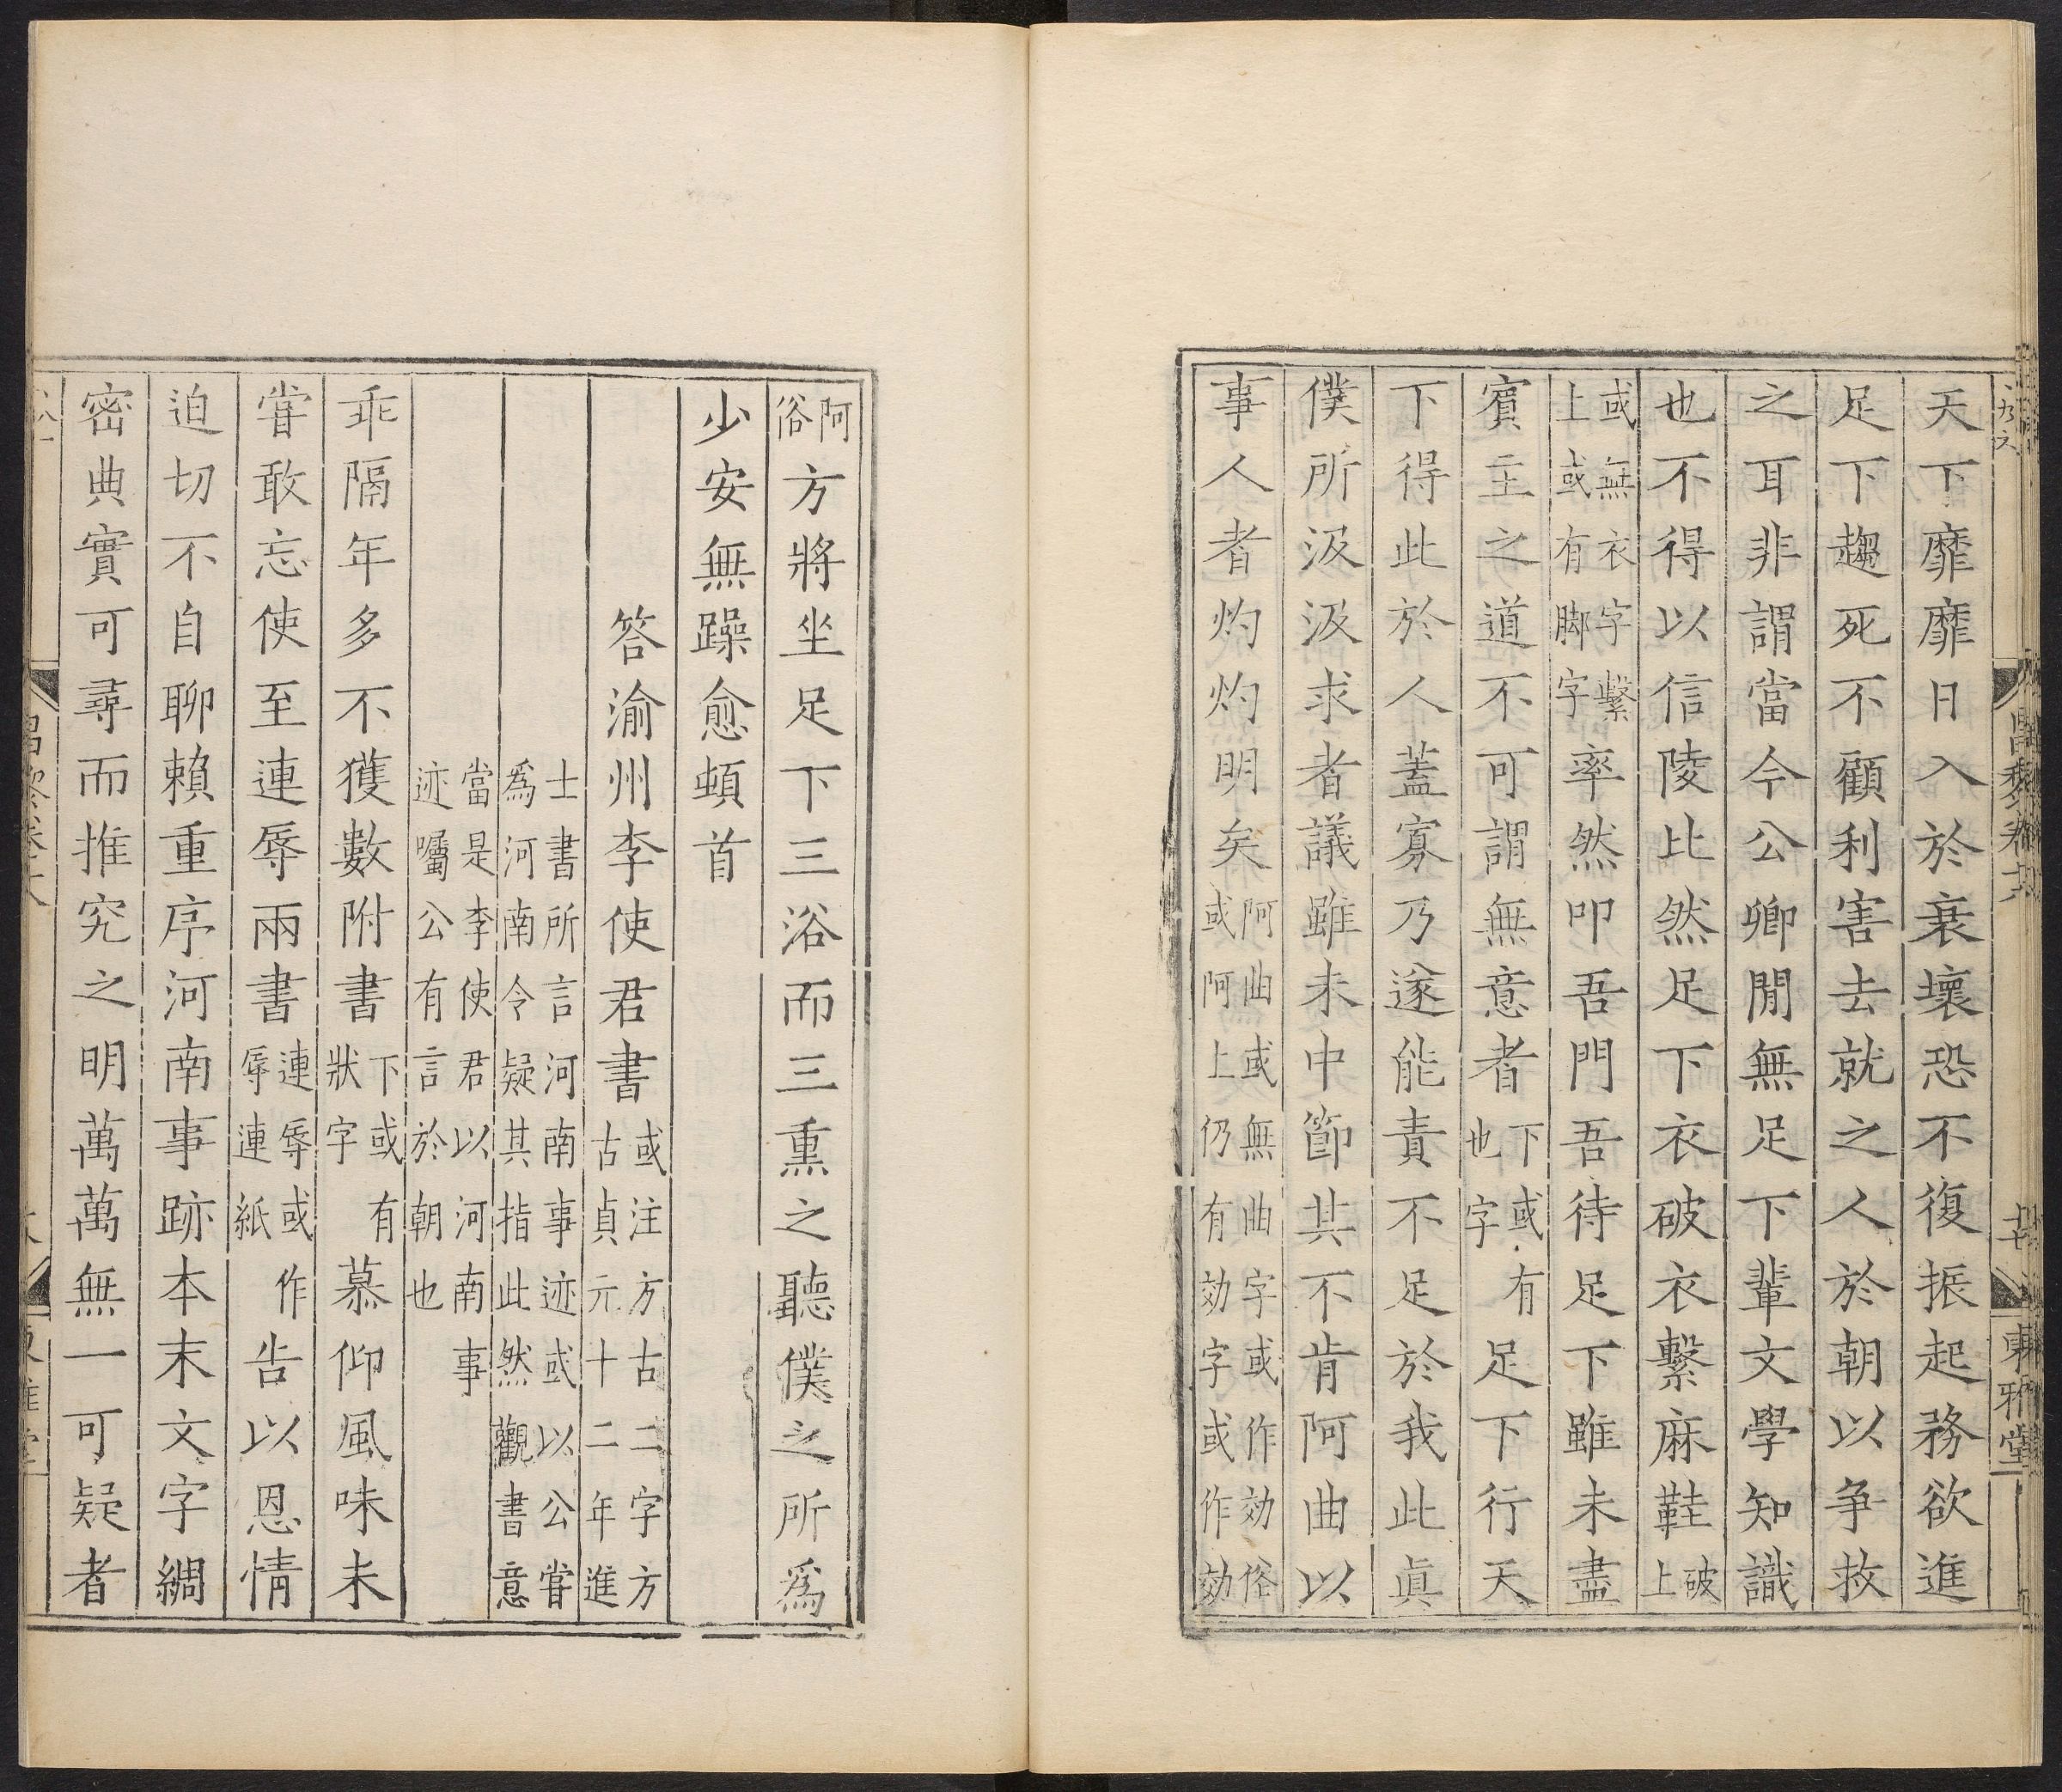 天下靡靡日入於衰壞恐不復振起務欲進
足下趨死不顧利害去就之人於朝以爭救
之耳非謂當今公卿閒無足下輩文學知識
也不得以信陵比然足下衣破衣繫麻鞋破上
或無衣字繫上或有脚字率然叩吾門吾待足下雖未盡
賓主之道不可謂無意者下或有也字足下行天
下得此於人蓋寡乃遂能責不足於我此眞
僕所汲汲求者議雖未中節其不肯阿曲以
事人者灼灼明矣阿曲或無曲字或作効俗或阿上仍有効字或作効
阿俗方將坐足下三浴而三熏之聽僕之所爲
少安無躁愈頓首
答渝州李使君書或注方古二字方古貞元十二年進
士書所言河南事迹或以公嘗爲河南令疑其指此然觀書意
當是李使君以河南事迹囑公有言於朝也
乖隔年多不獲數附書下或有狀字慕仰風味未
甞敢忘使至連辱兩書連辱或作辱連紙告以恩情
迫切不自聊賴重序河南事跡本末文字綢
密典實可尋而推究之明萬萬無一可疑者
東雅堂